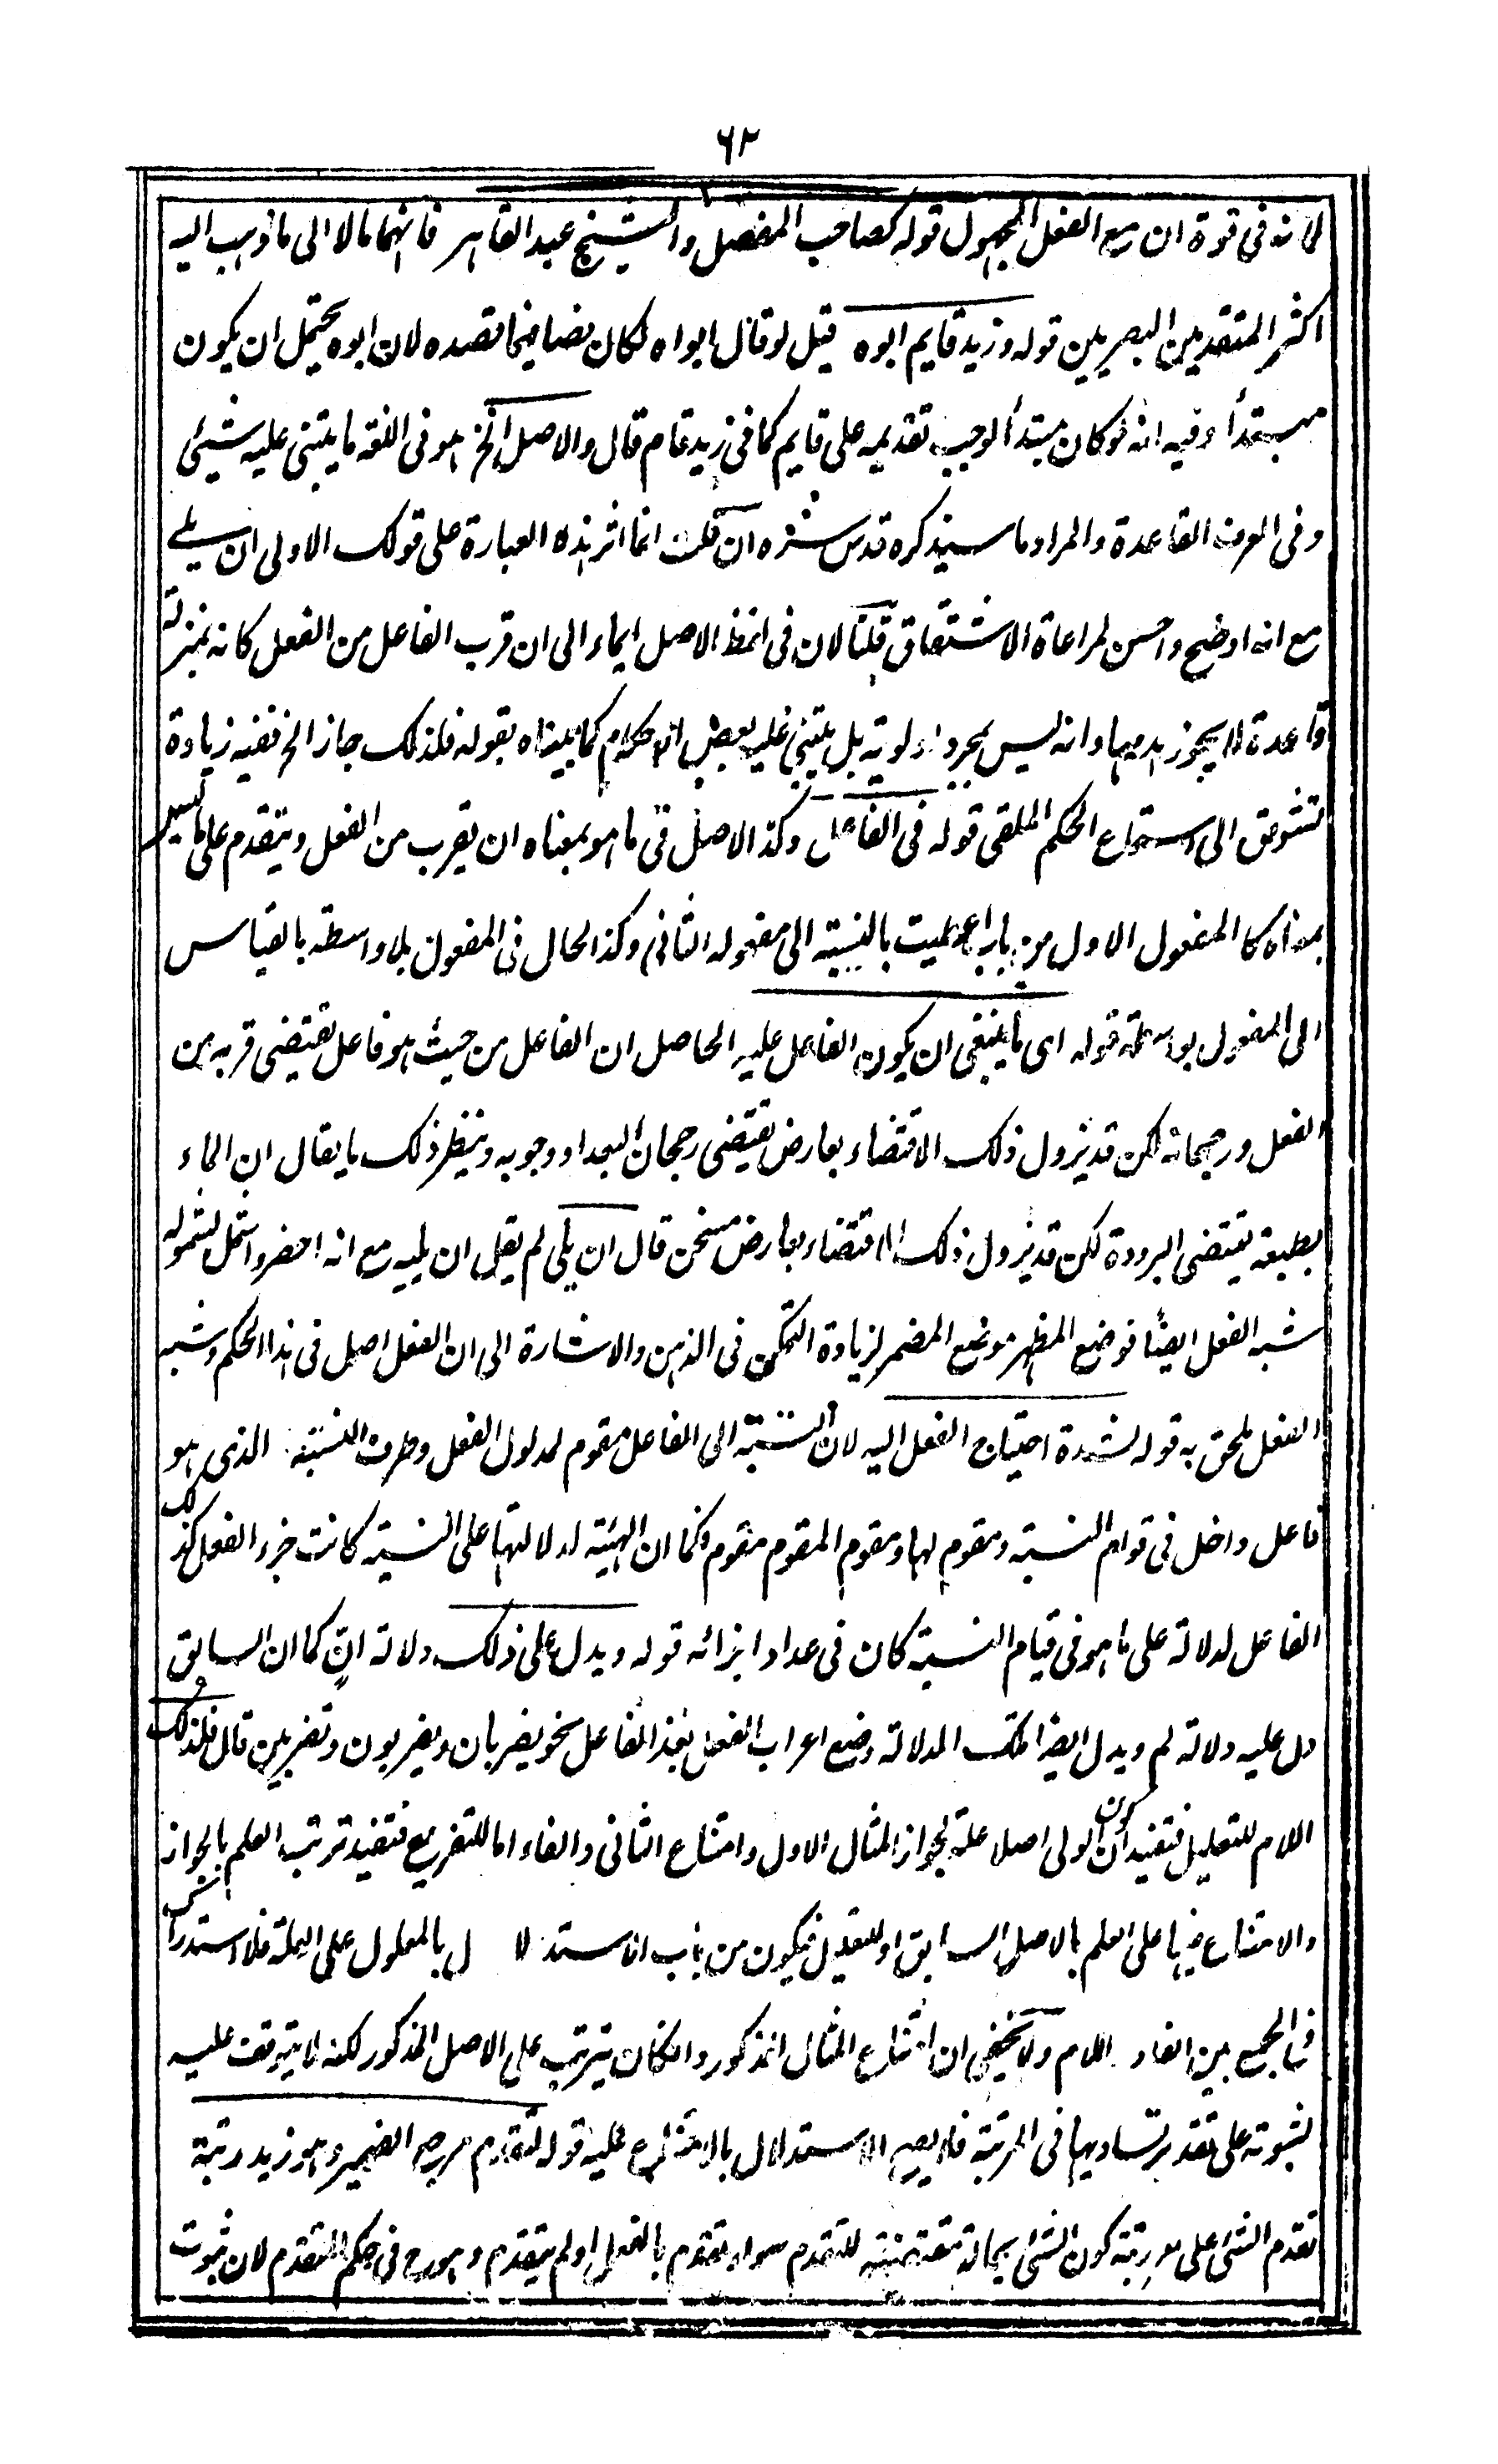 ٦٢
لانه فى قوة ان رفع الفعل المجهول قوله كصاحب المفصل والشيخ عبد القاهر فانهما مالا الى ما ذهب اليه
اكثر المتقدمين البصريين قوله وزيد قايم ابوه قيل لو قال ابواه لكان نصا فيما قصده لان ابوه يحتمل ان يكون
مبتدأ وفيه انه لو كان مبتدأ لوجب تقديمه على قايم كما فى زيد قام قال والاصل الخ هو فى اللغة ما يبتنى عليه شيئ
وفى العرف القاعدة والمراد ما سيذكره قدس سره ان قلت انما اثر هذه العبارة على قولك الاولى ان يلى
مع انه اوضح واحسن لمراعاة الاشتقاق قلنا لان فى لفظ الاصل ايماء الى ان قرب الفاعل من الفعل كانه بمنزلة
قاعدة لا يجوز هدمها وانه ليس بمجرد اولوية بل يبتنى عليه بعض الاحكام كما بيناه بقوله فلذلك جاز الخ ففيه زيادة
تشوق الى استماع الحكم الملقى قوله فى الفاعل وكذ الاصل فى ما هو بمعناه ان يقرب من الفعل ويتقدم على ما ليس
بمعناه كا المفعول الاول من باب اعطيت بالنسبة الى مفعوله الثانى وكذ الحال فى المفعول بلا واسطة بالقياس
الى المفعول بواسطة قوله اى ما ينبغى ان يكون الفاعل عليه الحاصل ان الفاعل من حيث هو فاعل يقتضى قربه من
الفعل ورجحانه لكن قد يزول ذلك الاقتضاء بعارض يقتضى رجحان البعد او وجوبه ونظير ذلك ما يقال ان الماء
بطبعه يقتضى البرودة لكن قد يزول ذلك الاقتضاء بعارض مسخن قال ان يلى لم يقل ان يليه مع انه اخصر واشمل لشموله
شبه الفعل ايضًا فوضع المظهر موضع المضمر لزيادة التمكن فى الذهن والاشارة الى ان الفعل اصل فى هذا الحكم وشبه
الفعل ملحق به قوله لشدة احتياج الفعل اليه لان النسبة الى الفاعل مقوم لمدلول الفعل وطرف النسبة الذى هو
فاعل داخل فى قوام النسبة ومقوم لها ومقوم المقوم مقوم وكما ان الهيئة لدلالتها على النسبة كانت جزء الفعل كذلك
الفاعل لدلالة على ما هو فى قيام النسبة كان فى عداد اجزائه قوله ويدل على ذلك دلالة انٍ كما ان السابق
دل عليه دلالة لم ويدل ايضا تلك الدلالة وضع اعراب الفعل بعد الفاعل نحو يضربان ويضربون وتضربين قال فلذلك
اللام للتعليل فتفيد ان كون الولى اصلا علة لجواز المثال الاول وامتناع الثانى والفاء اما للتفريع فتفيد ترتب العلم بالجواز
والامتناع فيها على العلم بالاصل السابق او للتعليل فيكون من باب الاستدلا ل بالمعلول على العلة فلا استدراك
فى الجمع بين الفاء واللام ولا يخفى ان امتناع المثال المذكور وان كان يترتب على الاصل المذكور لكنه لا يتوقف عليه
لثبوته على تقدير تساويهما فى المرتبة فلا يصح الاستدلال بالامتناع عليه قوله لتقدم مرجع الضمير وهو زيد رتبة
تقدم الشئ على رتبة كون الشئ بحالة مقتضية للتقدم سواء يتقدم بالفعل او لم يتقدم وهو ح فى حكم المتقدم لان ثبوت